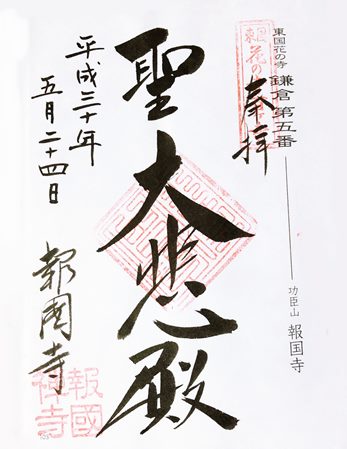 東国花の寺 鎌倉第五番 功臣山 報国寺
奉拝
聖大悲殿
平成三十年
五月二十四日 報国寺
報國
禅寺